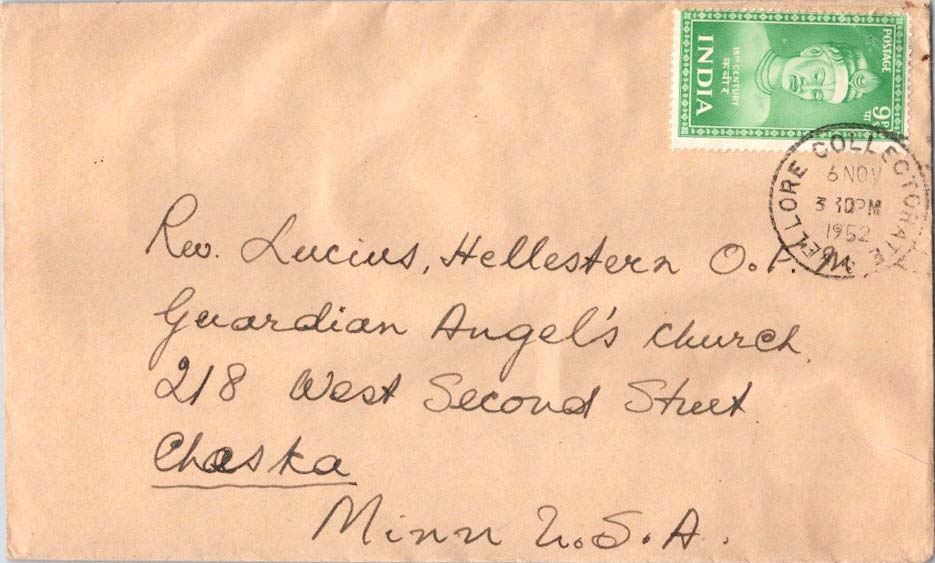 POSTAGE
9 Ps
पा
15TH CENTURY
कबीर
INDIA
NELLORE COLLECTORATE
6 NOV
3 30PM
1952
Rev. Lucius, Hellestern O.F.M
Guardian Angel's church,
218 West Second Street
Chaska
Minn U.S.A.